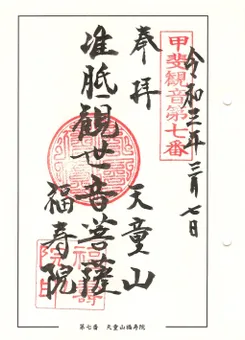 甲斐観音第七番
令和三年 三月七日
奉拝
天童山
准胝観世音菩薩
福寿院
第七番 天童山福寿院